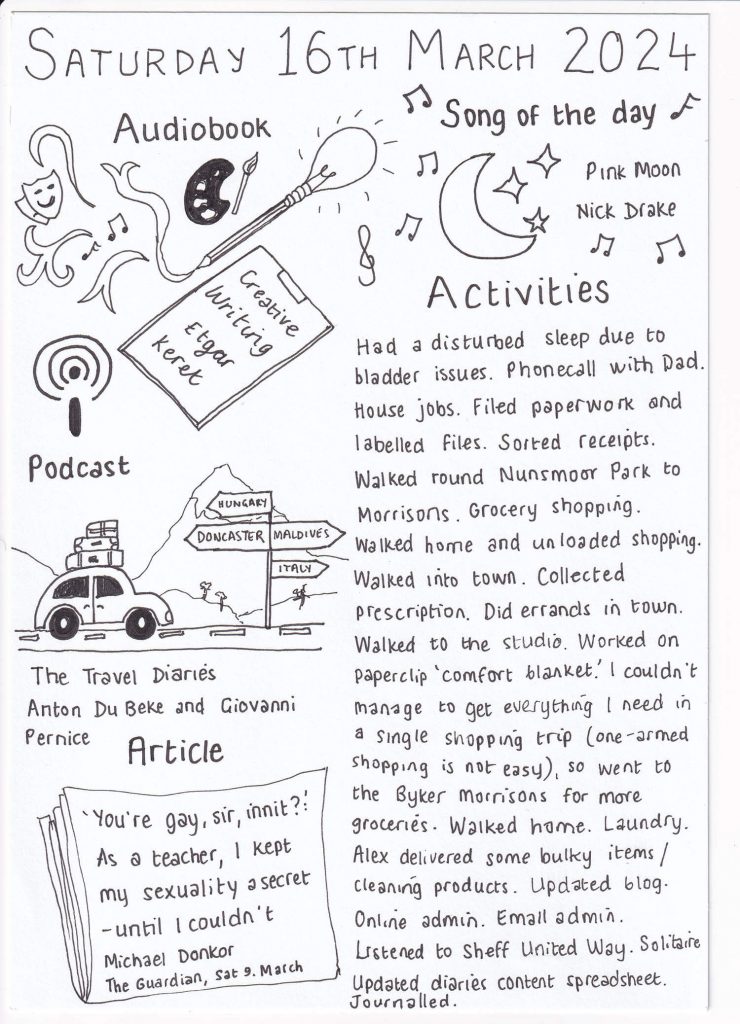 SATURDAY 16TH MARCH 2024
Audiobook
Creative
Writing
Etgar
Keret
Song of the day
Pink Moon
Nick Drake
Podcast
HUNGARY
DONCASTER MALDIVES
ITALY
The Travel Diaries
Anton Du Beke and Giovanni
Pernice
Article
'You're gay, sir, innit?!'
As a teacher, I kept
my sexuality a secret
-until I couldn't
Michael Donkor
The Guardian, Sat 9. March
Activities
Had a disturbed sleep due to
bladder issues. Phonecall with Dad.
House jobs. Filed paperwork and
labelled files. Sorted receipts.
Walked round Nunsmoor Park to
Morrisons. Grocery shopping.
Walked home and unloaded shopping.
Walked into town. Collected
prescription. Did errands in town.
Walked to the studio. Worked on
paperclip 'comfort blanket.' I couldn't
manage to get everything I need in
a single shopping trip (one-armed
shopping is not easy), so went to
the Byker Morrisons for more
groceries. Walked home. Laundry.
Alex delivered some bulky items/
cleaning products. Updated blog.
Online admin. Email admin.
Listened to Sheff United Way. Solitaire
Updated diaries content spreadsheet.
Journalled.